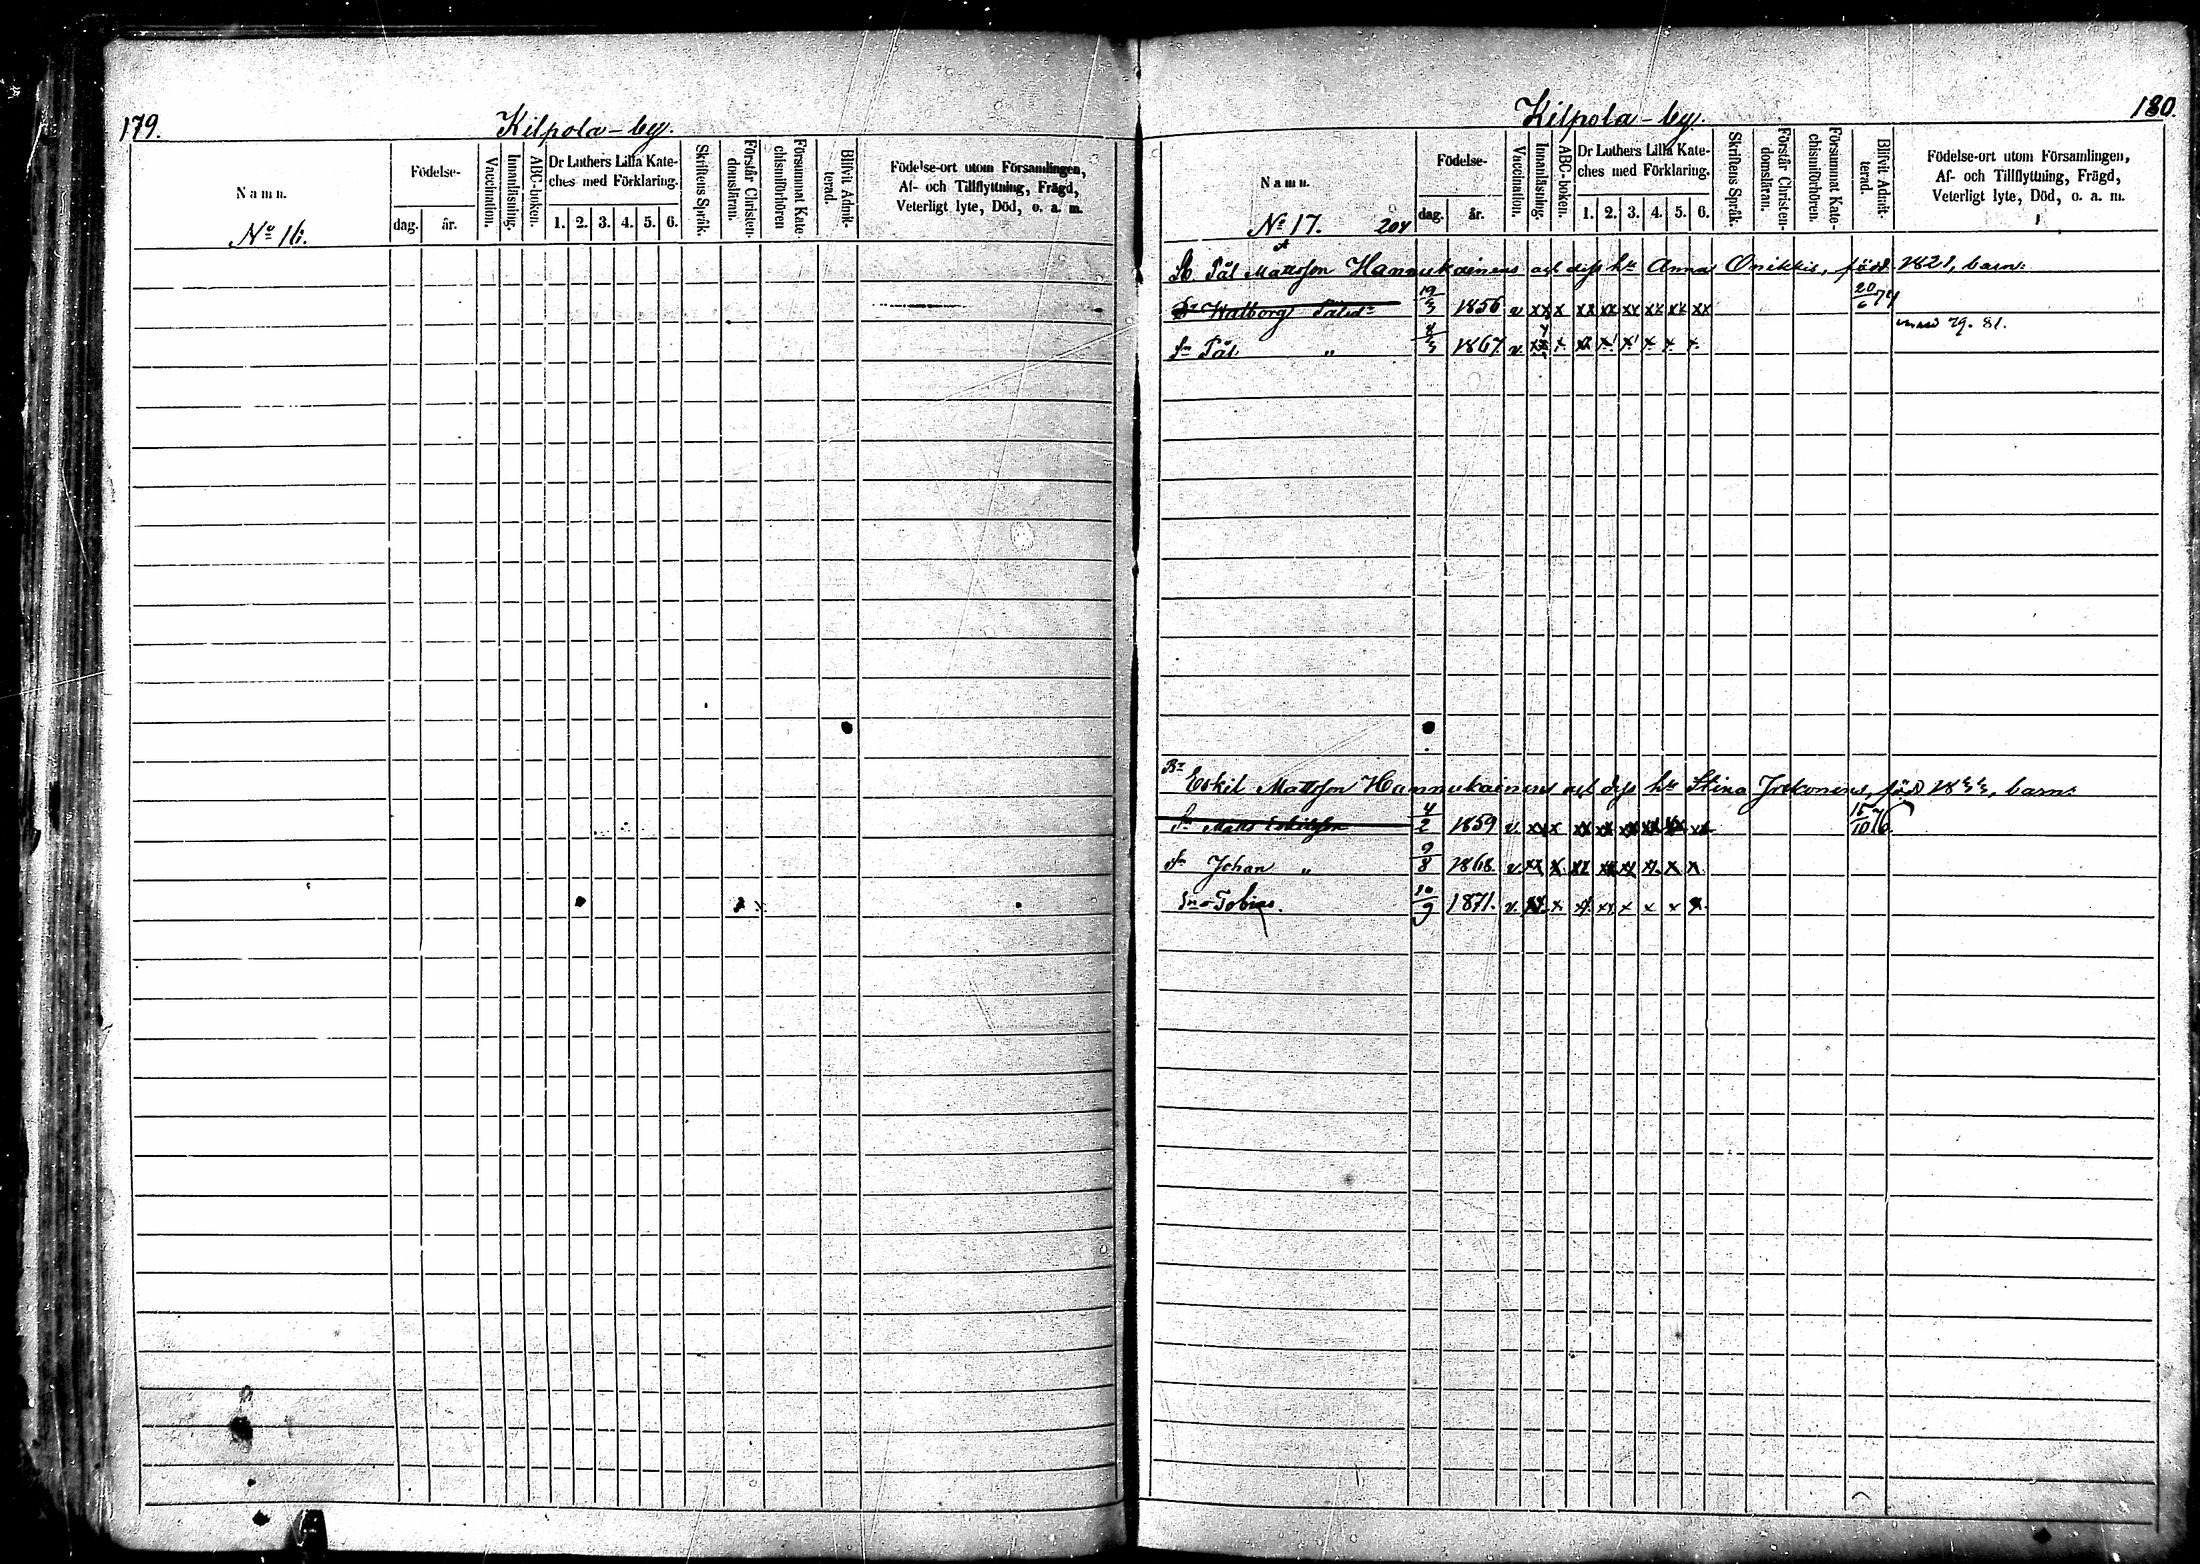 179.
Kilpola-by.
Namn.
Födelse-
dag. år.
Vaccination.
Innanläsning.
ABC-boken.
Dr Luthers Lilla Kate-
ches med Förklaring.
1. 2. 3. 4. 5. 6.
Skriftens Språk.
Förstår Christen-
domsläran.
Försummat Kate-
chismiförhören
Blifvit Admit-
terad.
Födelse-ort utom Församlingen,
Af- och Tillflyttning, Frägd,
Veterligt lyte, Död, o. a. m.
No 16.
180.
Kilpola-by.
Namn.
Födelse-
dag. år.
Vaccination.
Innanläsning.
ABC-boken.
Dr Luthers Lilla Kate-
ches med Förklaring.
1. 2. 3. 4. 5. 6.
Skriftens Språk.
Förstår Christen-
domsläran.
Försummat Kate-
chismiförhören.
Blifvit Admit-
terad.
Födelse-ort utom Församlingen,
Af- och Tillflyttning, Frägd,
Veterligt lyte, Död, o. a. m.
No 17. 204
Pål Mattsson Hannukainens och dess hu Anna Onikkis, född 1821, barn:
Dr Walborg Pålsdr 19/3 1856 v xx x xx xx xx xx xx xx 20/6 74
Sn Pål " 1867 v. x x x x x x
79. 81.
Br Eskil Mattsson Hannukainens och dess hu Stina, född 1833, barn:
Sn Matts Eskilsson 4/2 1859 v. xx x xx xx xx xx xx xx 15/10 76
Sn Johan " 9/8 1868 v. xx x xx xx xx x. x x
Sn Tobias. 10/9 1871. v. x x xx x x x x